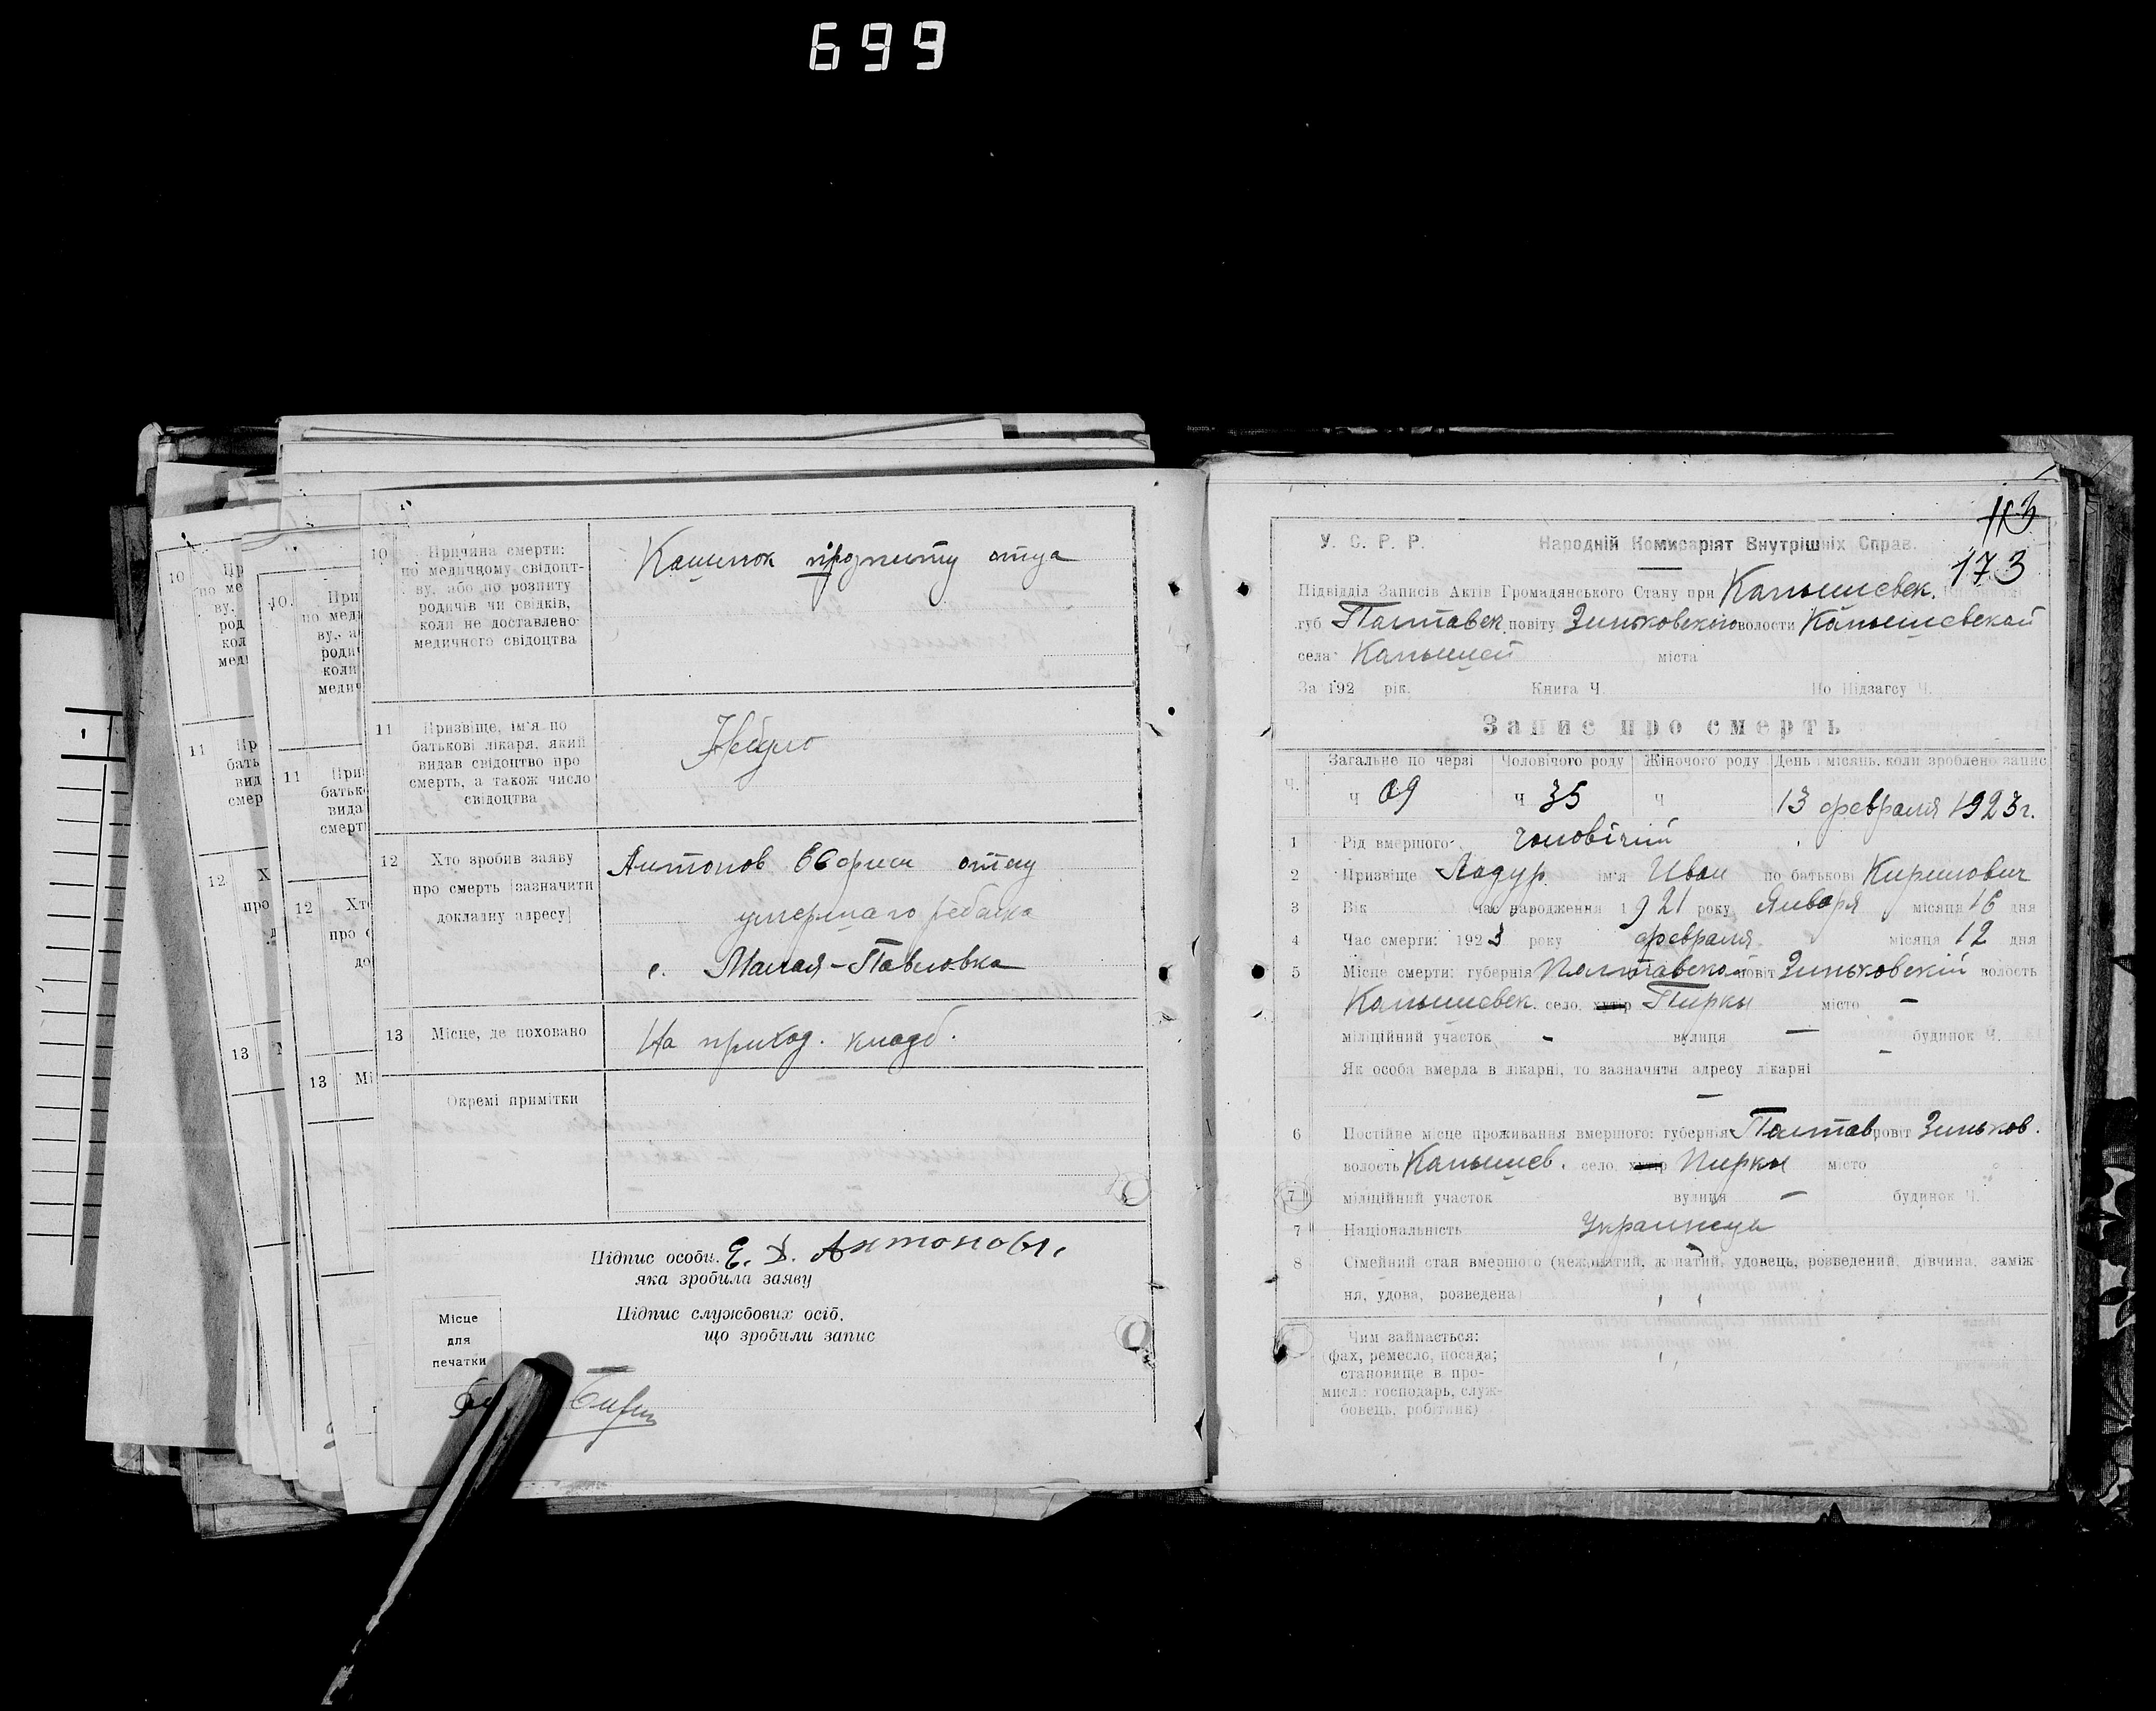 699
10
Причина смерти:
по медичному свідоцт-
ву, або по розпиту
родичів чи свідків,
коли не доставлено
медичного свідоцтва
отца
11
Призвіще, ім'я по
батькові лікаря, який
видав свідоцтво про
смерть, а також число
свідоцтва
Небуло
12
Хто зробив заяву
про смерть [зазначити
докладну адресу]
Антонов отец
умершаго ребенка
с. Малая-Павловка
13
Місце, де поховано
На приход. кладб.
Окремі примітки
Підпис особи, Е. Антоновъ
яка зробила заяву
Підпис службових осіб,
що зробили запис
Місце
для
печатки
113
173
У. С. Р. Р.
Народній Комисаріят Внутрішніх Справ.
Підвідділ Записів Актів Громадянського Стану при Капышевск.
губ Полтавск. повіту Зиньковского волости Капышевской
села Капышей міста
За 192 рік. Книга Ч. По Підзагсу Ч.
Запис про смерть
Ч. Загальне по черзі Чоловічого роду Жіночого роду День і місяць, коли зроблено запис
Ч 69 Ч 35 Ч 13 февраля 1923 г.
1 Рід вмершого чоловічий
2 Призвіще Ладур ім'я Иван по батькові Кирилович
3 Вік час народження 1921 року Января місяця 16 дня
4 Час смерти: 1923 року февраля місяця 12 дня
5 Місце смерти: губернія Полтавской повіт Зиньковскій волость
Капышевск. село, хутір Пирки місто —
міліційний участок - вулиця — будинок Ч. -
Як особа вмерла в лікарні, то зазначити адресу лікарні
—
6 Постійне місце проживання вмершого: губернія Полтав повіт Зиньков.
волость Капышев. село, хутір Пирки місто
міліційний участок вулиця — будинок Ч.
7 Національність Украинец
8 Сімейний стан вмершого (нежонатий, жонатий, удовець, розведений, дівчина, заміж-
ня, удова, розведена)
Чим займається:
(фах, ремесло, посада;
становище в про-
мислі: господарь, служ-
бовець, робітник)